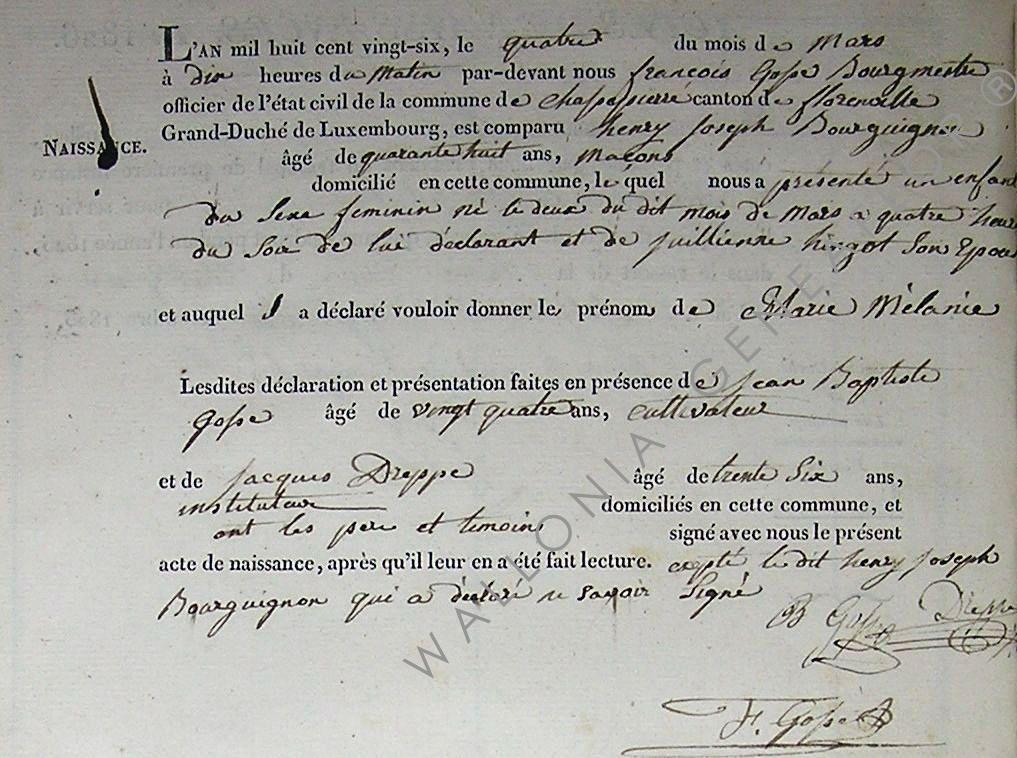 L'AN mil huit cent vingt-six, le quatre du mois de Mars
à dix heures du Matin par-devant nous françois Gosse Bourgmestre
officier de l'état civil de la commune de chassepierre canton de florenville
Grand-Duché de Luxembourg, est comparu henry Joseph Bourguignon
NAISSANCE.
âgé de quarante huit ans, Maçons
domicilié en cette commune, le quel nous a présenté un enfant
du Sexe feminin né le deux du dit mois de Mars a quatre heure
du Soir de lui déclarant et de juillienne hingot Son Epouse
et auquel il a déclaré vouloir donner le prénom de Marie Mélanie
Lesdites déclaration et présentation faites en présence de Jean Baptiste
Gosse âgé de vingt quatre ans, cultivateur
et de Jacques Dreppe âgé de trente Six ans,
instituteur domiciliés en cette commune, et
ont les pere et temoins signé avec nous le présent
acte de naissance, après qu'il leur en a été fait lecture. exepté le dit henry Joseph
Bourguignon qui a déclaré ne savoir Signé
B Gosse Dreppe
F. Gosse
WALLONIA GENEALOGY ®